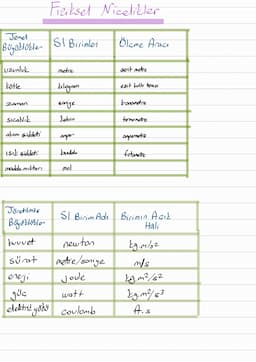 Fiziksel Nicelikler
Temel Büyüklükler SI Birimleri Ölçme Aracı
uzunluk metre şerit metre
kütle kilogram eşit kollu terazi
zaman saniye kronometre
sıcaklık kelvin termometre
akım şiddeti amper ampermetre
ışık şiddeti kandela fotometre
madde miktarı mol
Türetilmiş Büyüklükler SI Birim Adı Birimin Açık Hali
kuvvet newton kg.m/s²
sürat metre/saniye m/s
enerji Joule kg m²/s²
güç watt kg.m²/s³
elektrik yükü coulomb A.s